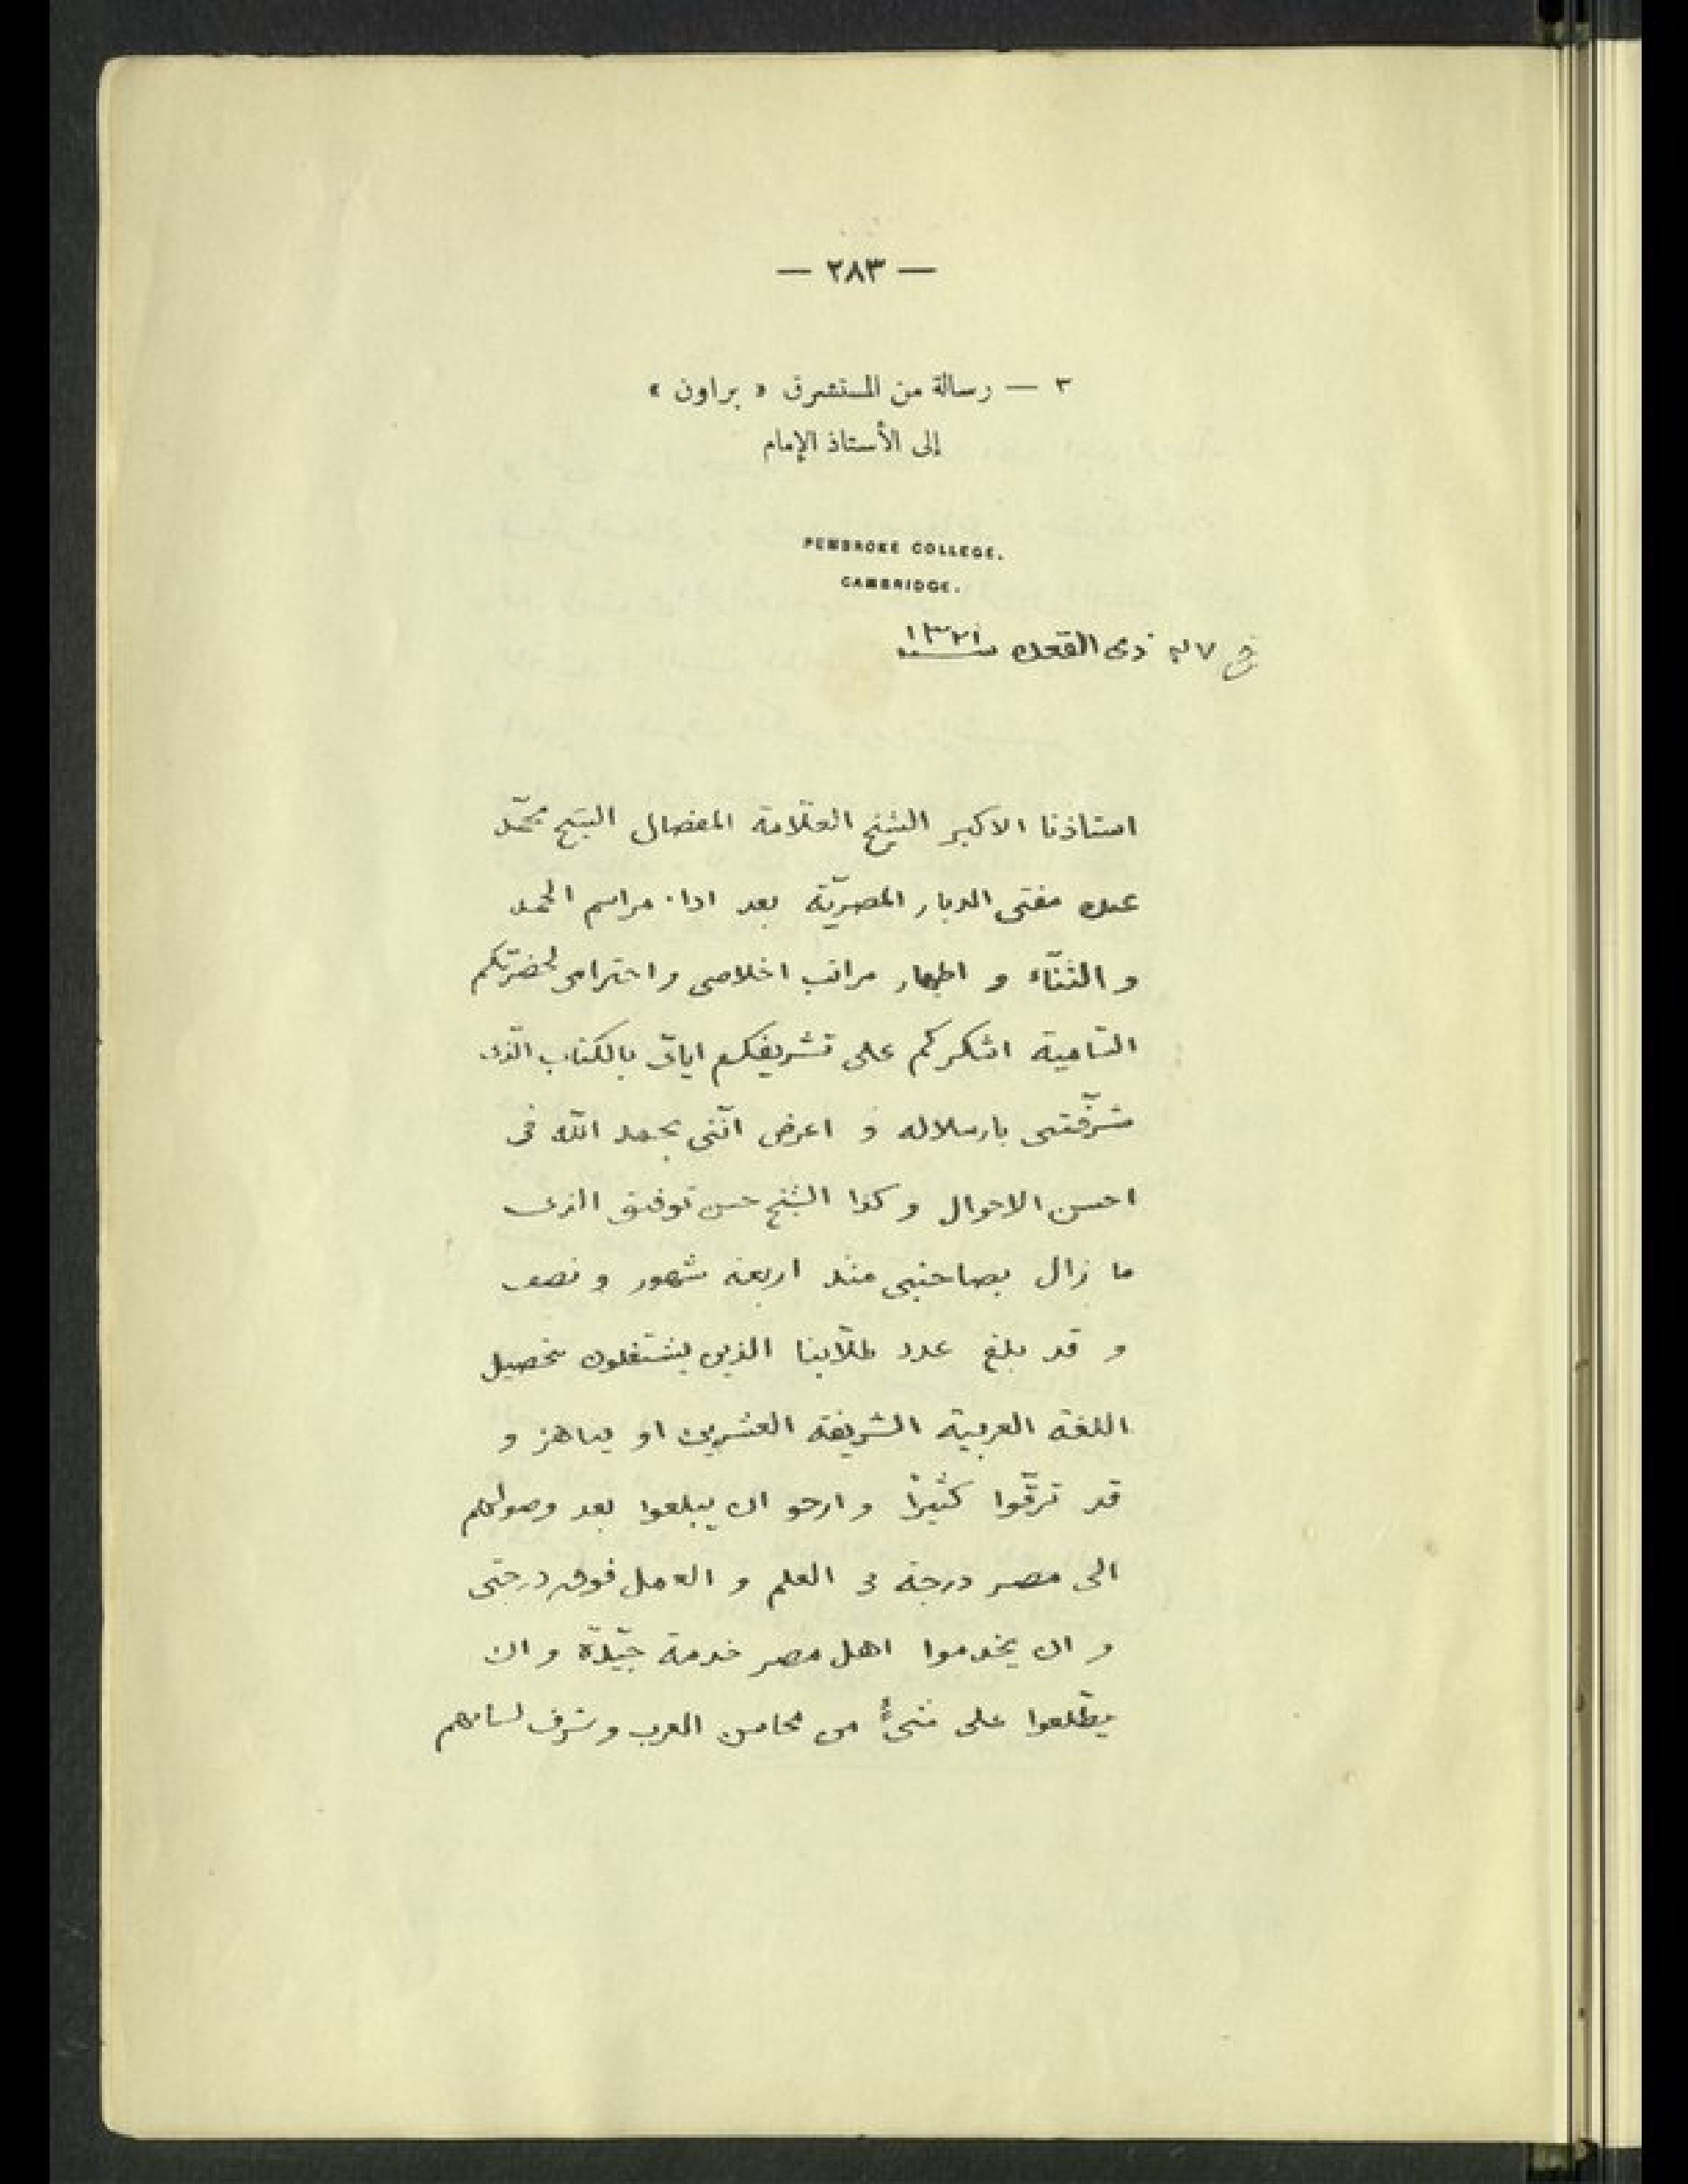 — ٢٨٣ —
٣ — رسالة من المستشرق « براون »
إلى الأستاذ الإمام
PEMBROKE COLLEGE.
CAMBRIDGE.
ذى القعده سنة ١٣٢١
استاذنا الاكبر الشيخ العلّامة المفضال الشيخ محمّد
عبده مفتى الديار المصريّة بعد اداء مراسم الحمد
و الثنّاء و اظهار مراتب اخلاصى و احترامى لحضرتكم
السّامية اشكركم على تشريفكم ايّاى بالكتاب الّذى
شرّفتنى بارساله و اعرض انّنى بحمد اللّه فى
احسن الاحوال و كذا الشيخ حسن توفيق الذى
ما زال يصاحبنى منذ اربعة شهور و نصف
و قد بلغ عدد طلّابنا الذين يشتغلون بتحصيل
اللغة العربية الشريفة العشرين او يناهز و
قد ترقّوا كثيرًا و ارجو ان يبلغوا بعد وصولهم
الى مصر درجة فى العلم و العمل فوق درجتى
و ان يخدموا اهل مصر خدمة جيّدة و ان
يطّلعوا على شىءٍ من محاسن العرب و شرف لسانهم